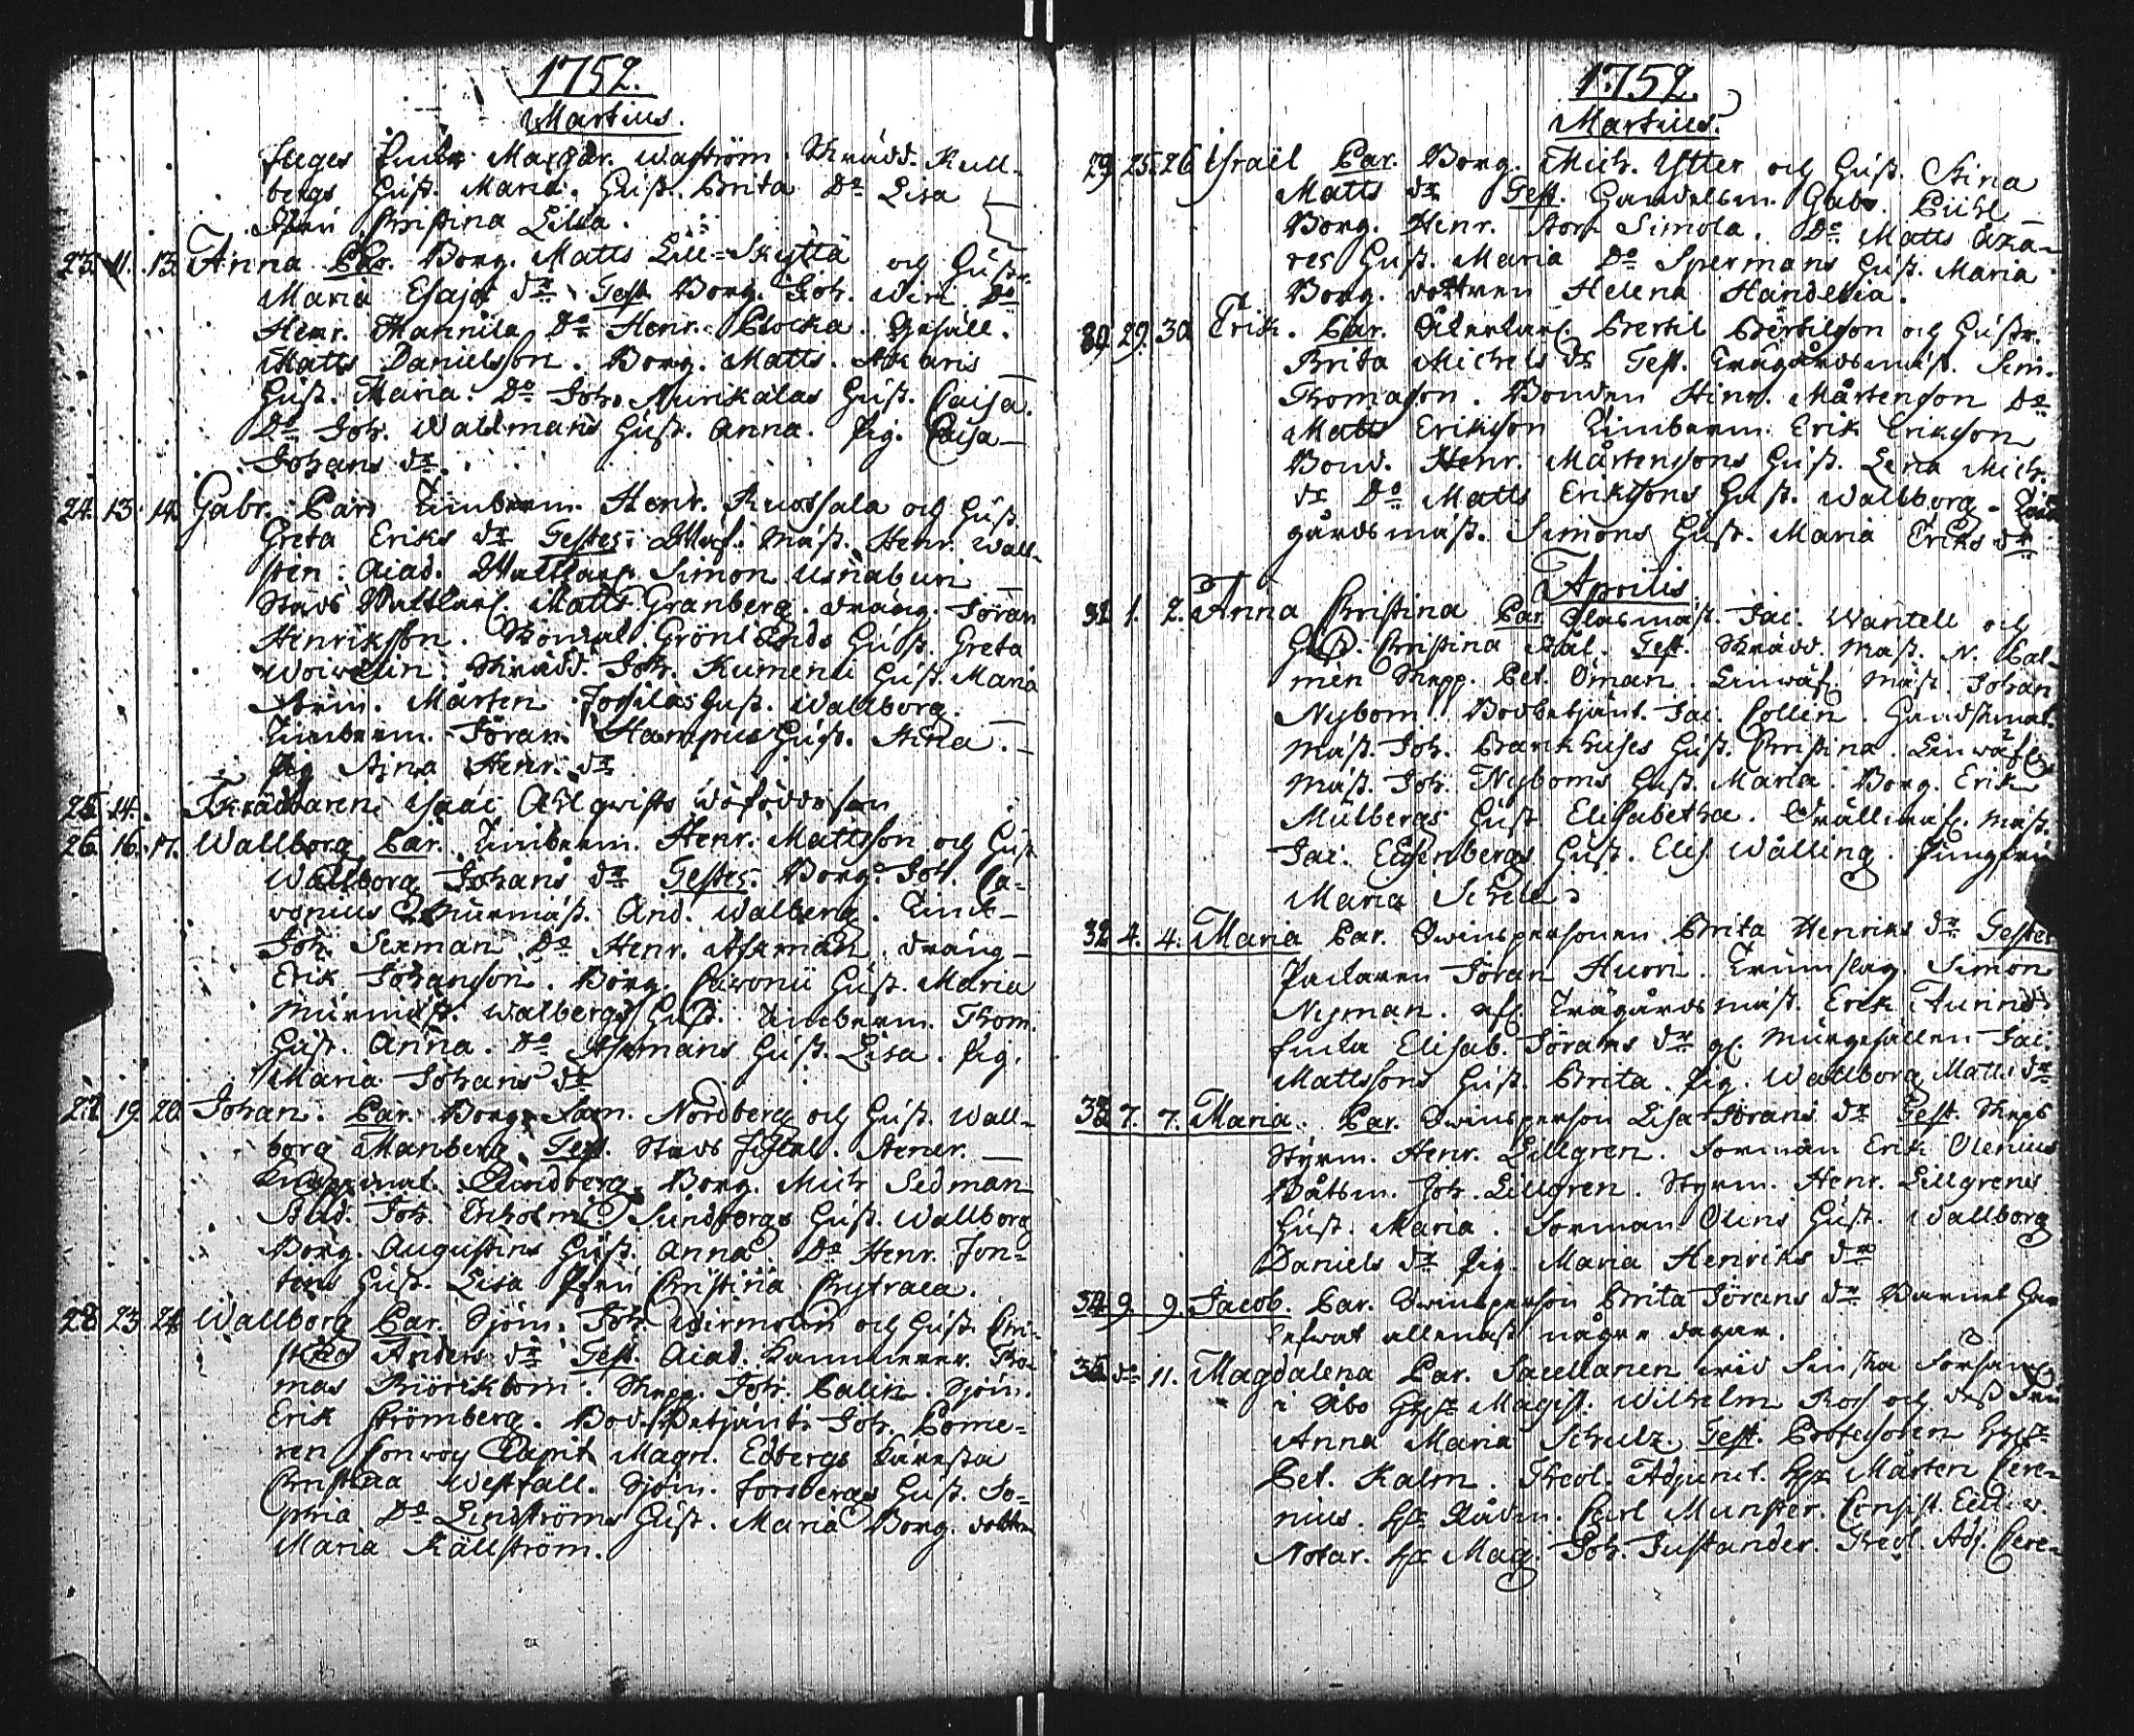 1752.
Martius.
Margar. Waström. Skrädd. Kull-
bergs Hust. Maria. Hust. Brita Do Lisa
Jfru Christina Lilia.
23. 11. 13. Anna Par. Borg. Matts Lill-Skyttä och Hustr.
Maria Esajæ dr. Test. Borg. Joh. Wiri. Do
Henr. Mannila Do Henr. Clocka. Gesäll.
Matts Danielsson. Borg. Matts. Akaris
Hust. Maria. Do Joh. Nurikalas Hust. Caisa.
Do Joh. Waldmans Hust. Anna. Pig. Caisa
Johans dr.
24. 13. 14. Gabr. Par. Timberm. Henr. Ruossala och Hust.
Greta Eriks dr Testes: Mäst. Henr. Wall-
sten. Acad. Waktkarl Simon Usnaburi
Stads Waktkarl. Matts Granberg. dräng. Jöran
Henriksson. Grönlunds Hust. Greta
Woivalin. Skrädd. Joh. Kumeni Hust. Maria
Mårten Hust. Wallborg.
Timberm. Jöran Hampus Hust. Stina.
Pig Stina Henr. dr
25. 14. Skräddaren Isaac Ahlqwists dödfödde son
26. 16. 17. Wallborg Par. Timberm. Henr. Mattsson och Hust.
Wallborg Johans dr Testes: Borg. Joh. Ca-
vonius Murmäst. And. Walberg. Timb.
Joh. Sexman Do Henr. Askman dräng
Erik Johanson. Borg. Cavonii Hust. Maria
Murmäst. Walbergs Hust. Timberm. Thom.
Hust. Anna. Do Askmans Hust. Lisa. Pig.
Maria Johans dr
27. 19. 20. Johan. Par. Borg. Sam. Nordberg och Hust. Wall-
borg Manberg. Test. Stads Fiscal. Stener.
Knappmak. Lundberg. Borg. Mich Sedman
Stud. Joh. Ekholm. Sundbergs Hust. Wallborg
Borg. Augustins Hust. Anna. Do Henr. Jon-
tens Hust. Lisa Jfru Christina Prytraea.
28. 23. 24. Wallborg Par. Sjöm. Joh. Wirmolin och Hust. Chri-
stina Anders dr Test. Acad. Kammerer. Tho-
mas Biörckbom. Skepp. Joh. Calin. Sjöm.
Erik Strömberg. Bod. Betjänt Joh. Pome-
ren Convoy Capit. Magn. Edbergs Käresta
Christina Westfall. Sjöm. Forsbergs Hust. So-
phia Do Lindströms Hust. Maria Borg. dotter
Maria Källström.
1752.
Martius.
29. 25. 26. Israël Par. Borg. Mich. Ytter och Hust. Stina
Matts dr Test. Handelsm. Gabr. Pichl
Borg. Henr. Stor Simola. Do Matts Aka-
res Hust. Maria Do Spermans Hust. Maria
Borg. dottren Helena Händelia.
30. 29. 30. Erik. Par. Åkerkarl. Bertil Bertilson och Hustr.
Brita Michels dr Test. Trägårdsmäst. Sim.
Thomasson. Bonden Hinr. Mårtenson Do
Matts Erikson Timberm. Erik Erikson
Bond. Henr. Mårtensons Hust. Lena Mich.
dr Do Matts Eriksons Hust. Wallborg. Trä
gårdsmäst. Simons Hust. Maria Eriks dr
Aprilis.
31. 1. 2. Anna Christina Par. Glasmäst. Jac. Wartell och
Hust. Christina Pål. Test. Skrädd. Mäst. N. Pal-
mén Skepp. Pet. Öman. Linwäf. Mäst. Johan
Nybom. Bodbetjänt. Jac. Collin. Handskmak.
Mäst. Joh. Barckhuses Hust. Christina. Linwäf.
Mäst. Joh. Nyboms Hust. Maria. Borg. Erik
Mulbergs Hust. Elisabetha. mäst.
Jac. Hust. Elis. Wålling. Jungfru
Maria Schele
32. 4. 4. Maria Par. Qwinspersonen Brita Henriks dr Testes
Packaren Jöran Huori. Trumslag. Simon
Nyman. afl. Trägårdsmäst. Erik
Enka Elisab. Jörans dr gl. Murgesällen Jac.
Mattssons Hust. Brita. Pig. Wallborg Matts dr
33. 7. 7. Maria. Par. Qwinsperson Lisa Jörans dr Test. Skeps
Styrm. Henr. Lillgren. Forman Erik Olenius
Båtsm. Joh. Lillgren. Styrm. Henr. Lillgrens
Hust. Maria. Forman Olins Hust. Wallborg
Daniels dr Pig. Maria Henriks dr
34. 9. 9. Jacob. Par. Qwinsperson Brita Jörans dr. Barnet har
lefwat allenast några dagar.
35. do 11. Magdalena Par. Sacellanen wid Finska Församl.
i Åbo Magist. Wilhelm Ross och dess Fru
Anna Maria Schulz. Test. Professoren
Pet. Kalm. Theol. Adjunct. Hr Mårten Cere-
nius. Hr Rådm. Carl Munster. Consist. Eccl.
Notar. Hr Mag. Joh. Justander. Theol. Adj. Cere-